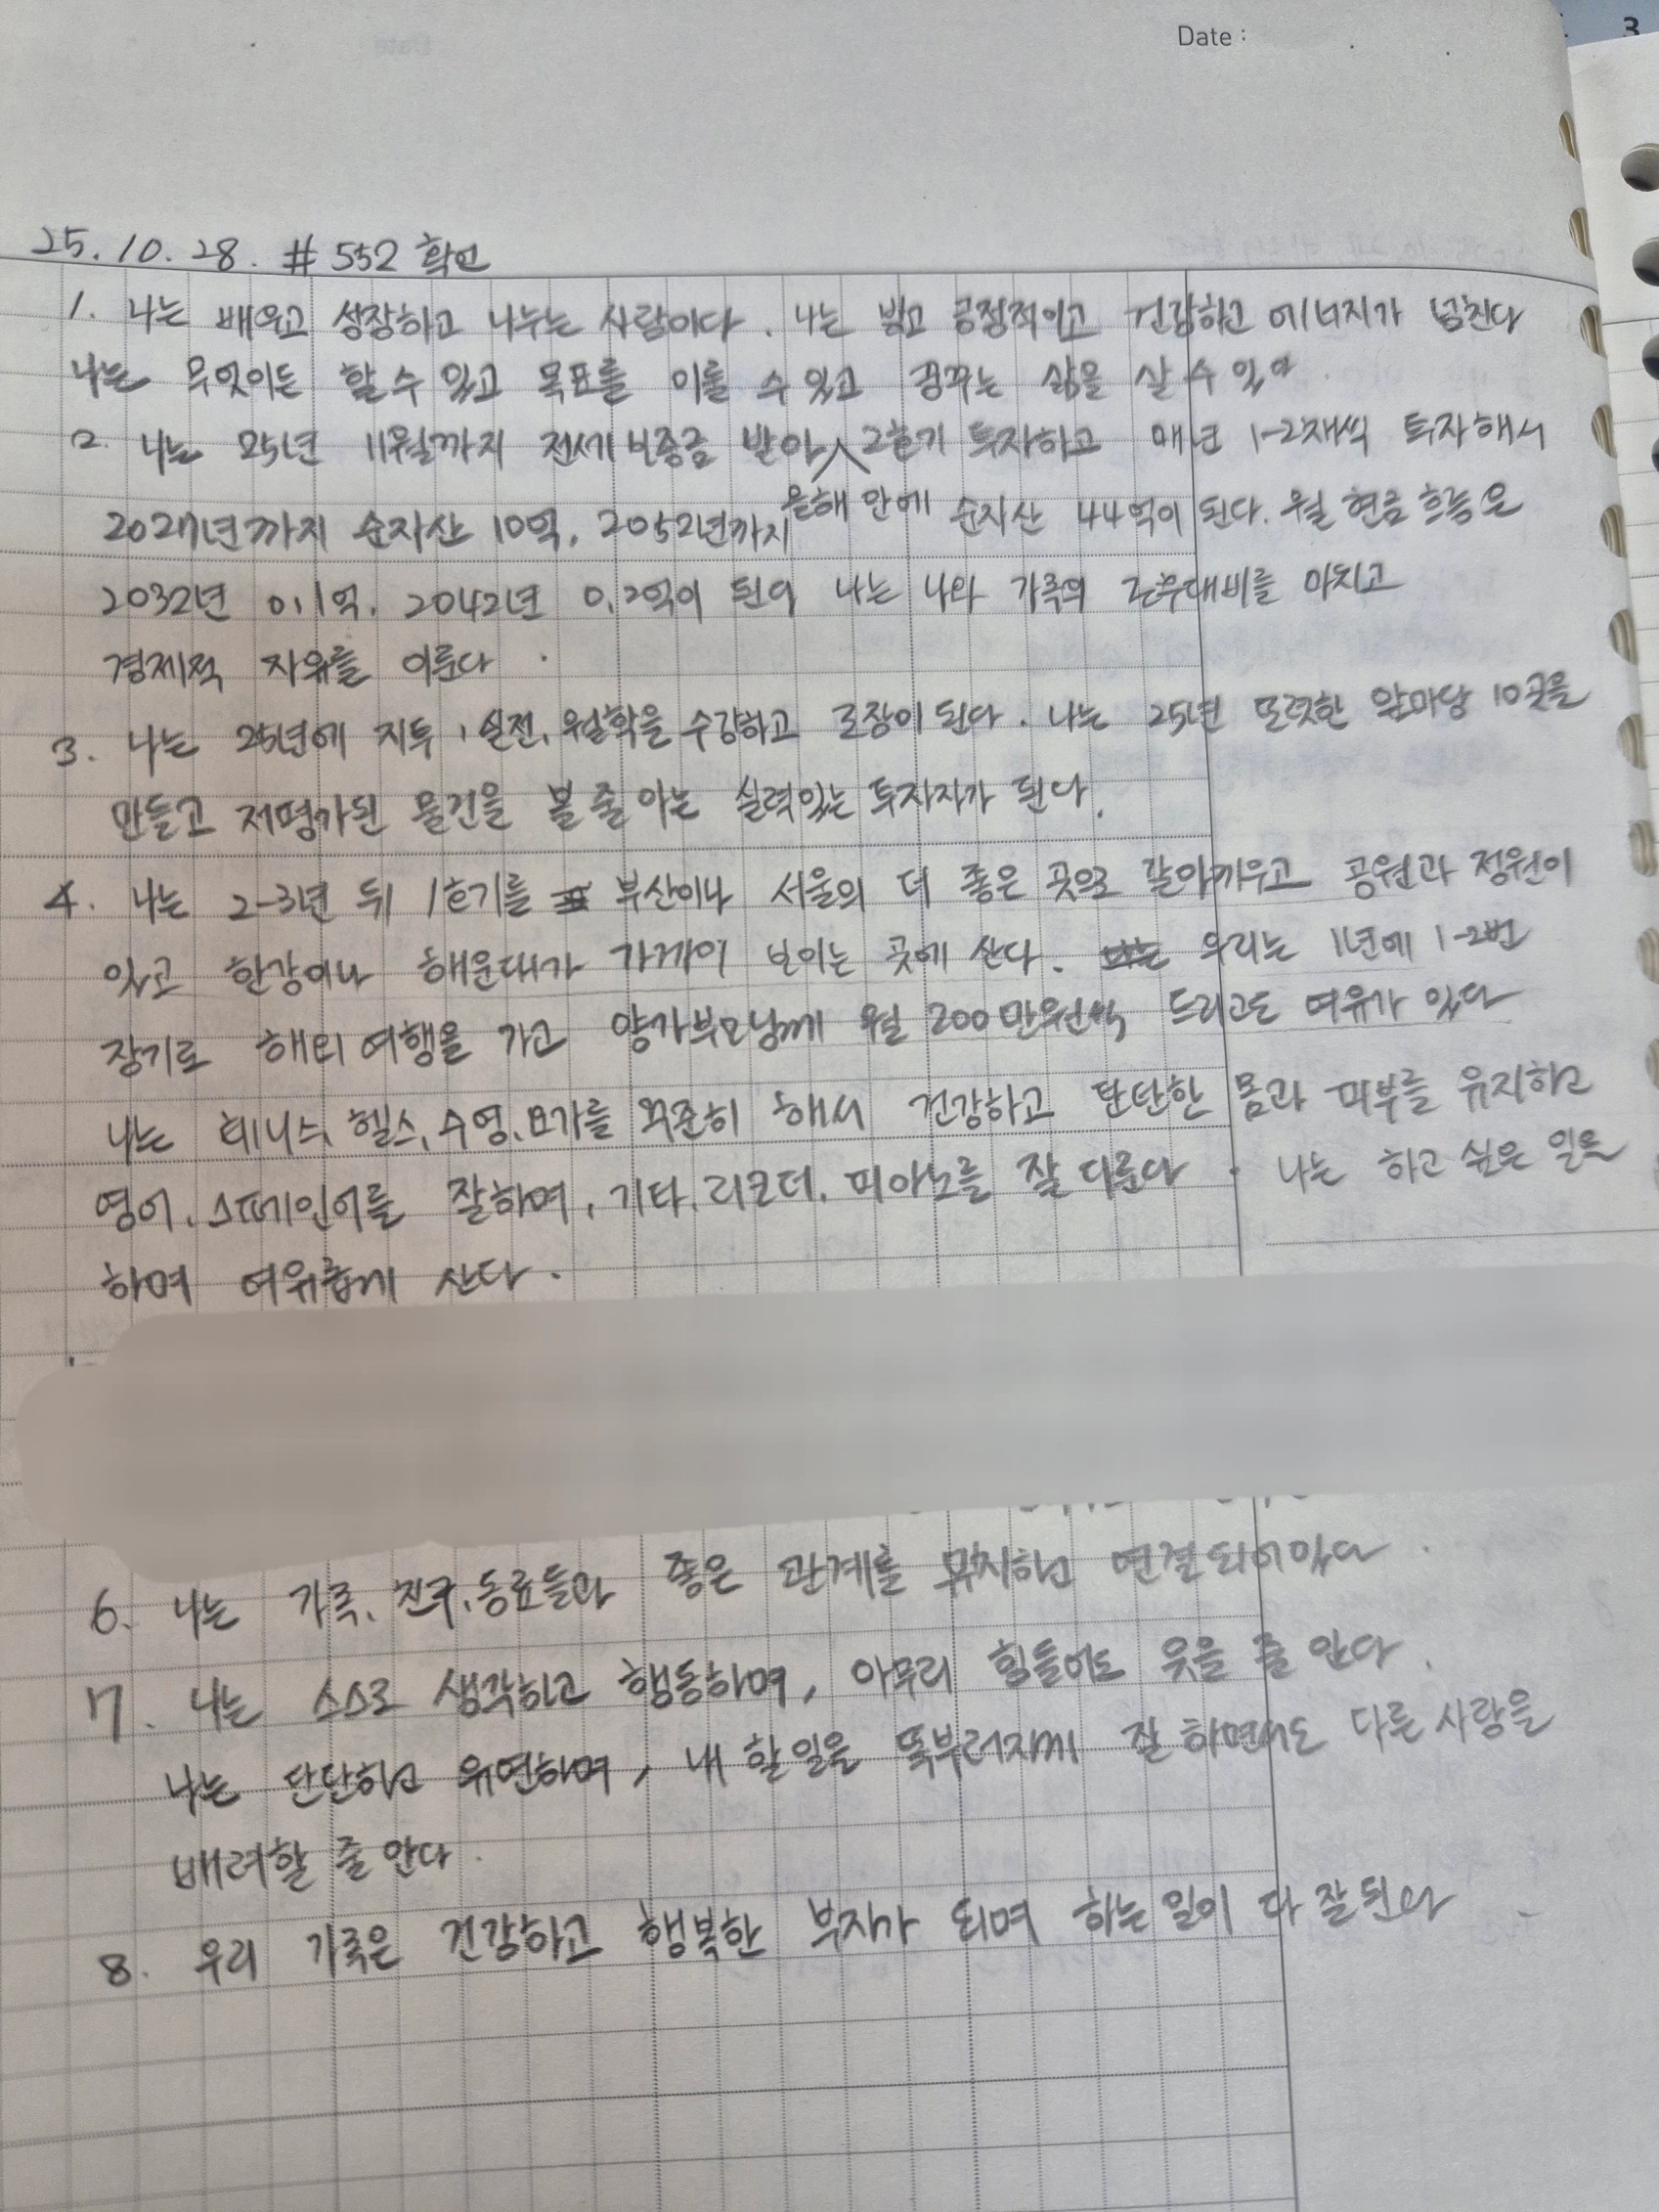 Date :
3
25. 10. 28. # 552 확언
1. 나는 배우고 성장하고 나누는 사람이다. 나는 밝고 긍정적이고 건강하고 에너지가 넘친다
나는 무엇이든 할 수 있고 목표를 이룰 수 있고 꿈꾸는 삶을 살 수 있어
2. 나는 25년 11월까지 전세보증금 받아 2호기 투자하고 매년 1-2채씩 투자해서
올해 안에
2027년까지 순자산 10억, 2052년까지 순자산 44억이 된다. 월 현금 흐름은
2032년 0.1억, 2042년 0.2억이 된다 나는 나와 가족의 노후대비를 마치고
경제적 자유를 이룬다.
3. 나는 25년에 지투, 실전, 월학을 수강하고 조장이 된다. 나는 25년 또렷한 앞마당 10곳을
만들고 저평가된 물건을 볼 줄 아는 실력있는 투자자가 된다.
4. 나는 2-3년 뒤 1호기를 부산이나 서울의 더 좋은 곳으로 갈아끼우고 공원과 정원이
있고 한강이나 해운대가 가까이 보이는 곳에 산다. 우리는 1년에 1-2번
장기로 해외 여행을 가고 양가부모님께 월 200만원씩 드리고도 여유가 있다
나는 테니스, 헬스, 수영, 요가를 꾸준히 해서 건강하고 탄탄한 몸과 피부를 유지하고
영어, 스페인어를 잘하며, 기타, 리코더, 피아노를 잘 다룬다. 나는 하고 싶은 일을
하며 여유롭게 산다.
6. 나는 가족, 친구, 동료들과 좋은 관계를 유지하고 연결되어있다.
7. 나는 스스로 생각하고 행동하며, 아무리 힘들어도 웃을 줄 안다.
나는 단단하고 유연하며, 내 할일을 똑부러지게 잘 하면서도 다른 사람을
배려할 줄 안다.
8. 우리 가족은 건강하고 행복한 부자가 되며 하는 일이 다 잘된다